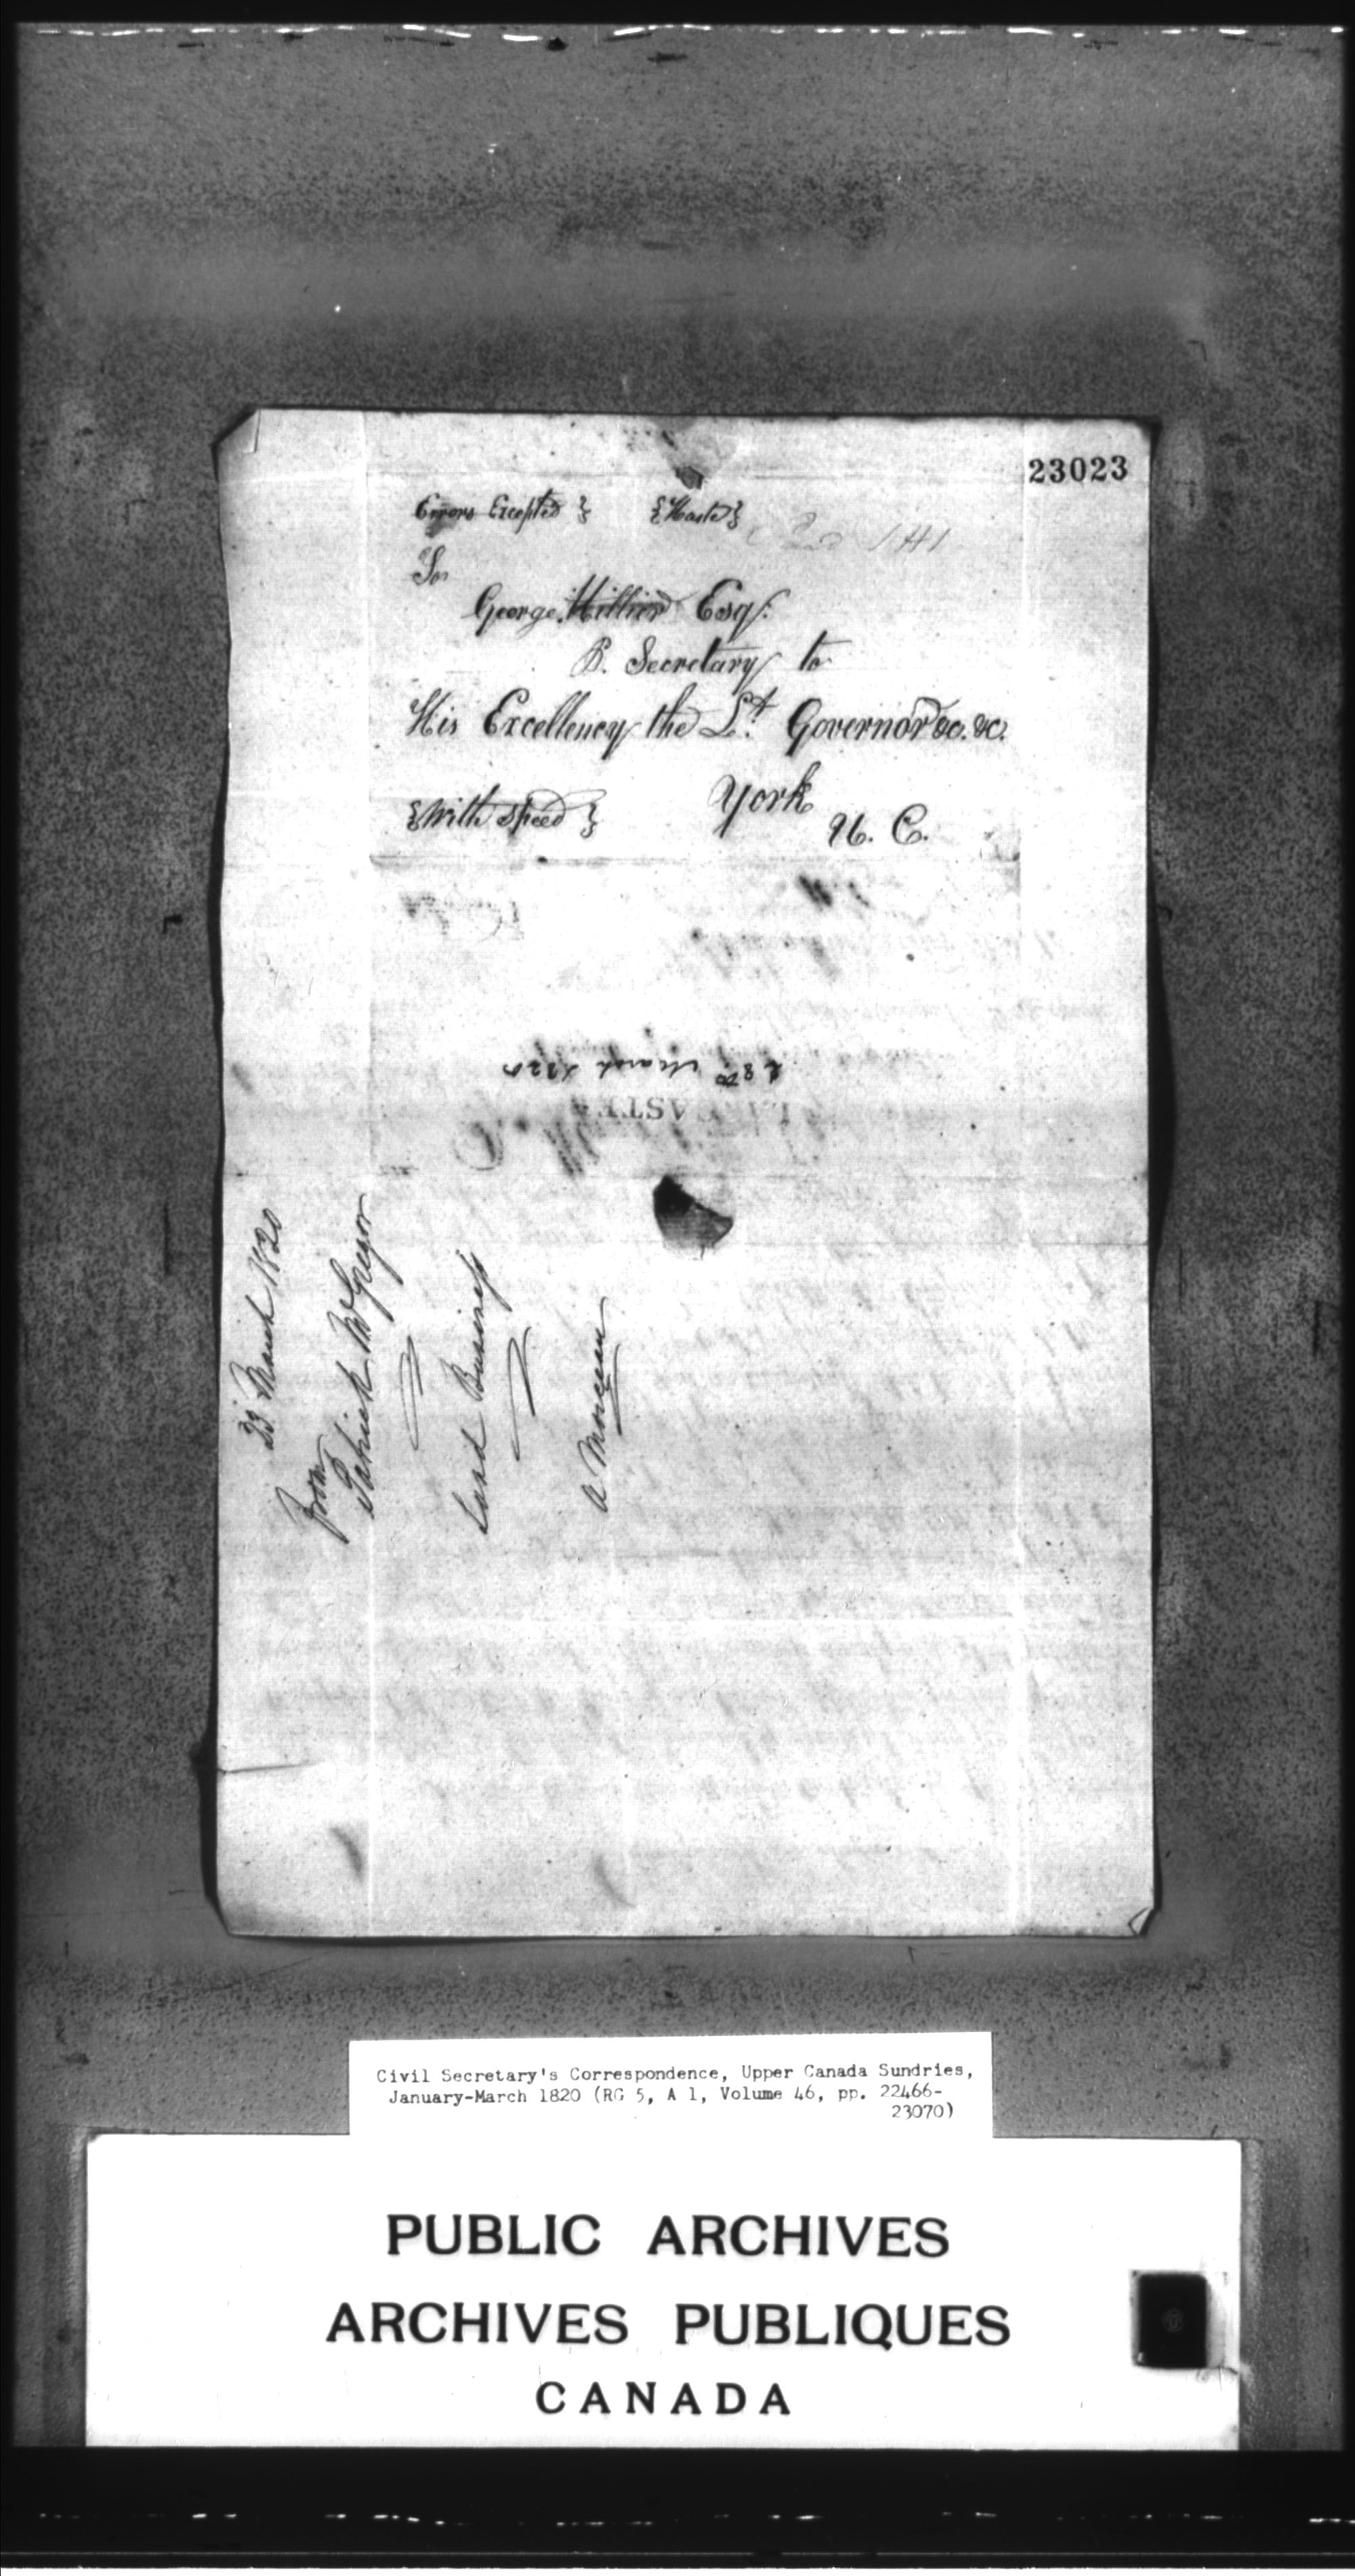 23023
Errors Excepted } {Haste}
To
George Hillier Esqr.
P. Secretary to
His Excellency the Lt. Governor &c. &c.
{With Speed} York
U. C.
28th March 1820
23 March 1820
from
Patrick McGregor
Land Business
Civil Secretary's Correspondence, Upper Canada Sundries,
January-March 1820 (RG 5, A 1, Volume 46, pp. 22466-
23070)
PUBLIC ARCHIVES
ARCHIVES PUBLIQUES
CANADA